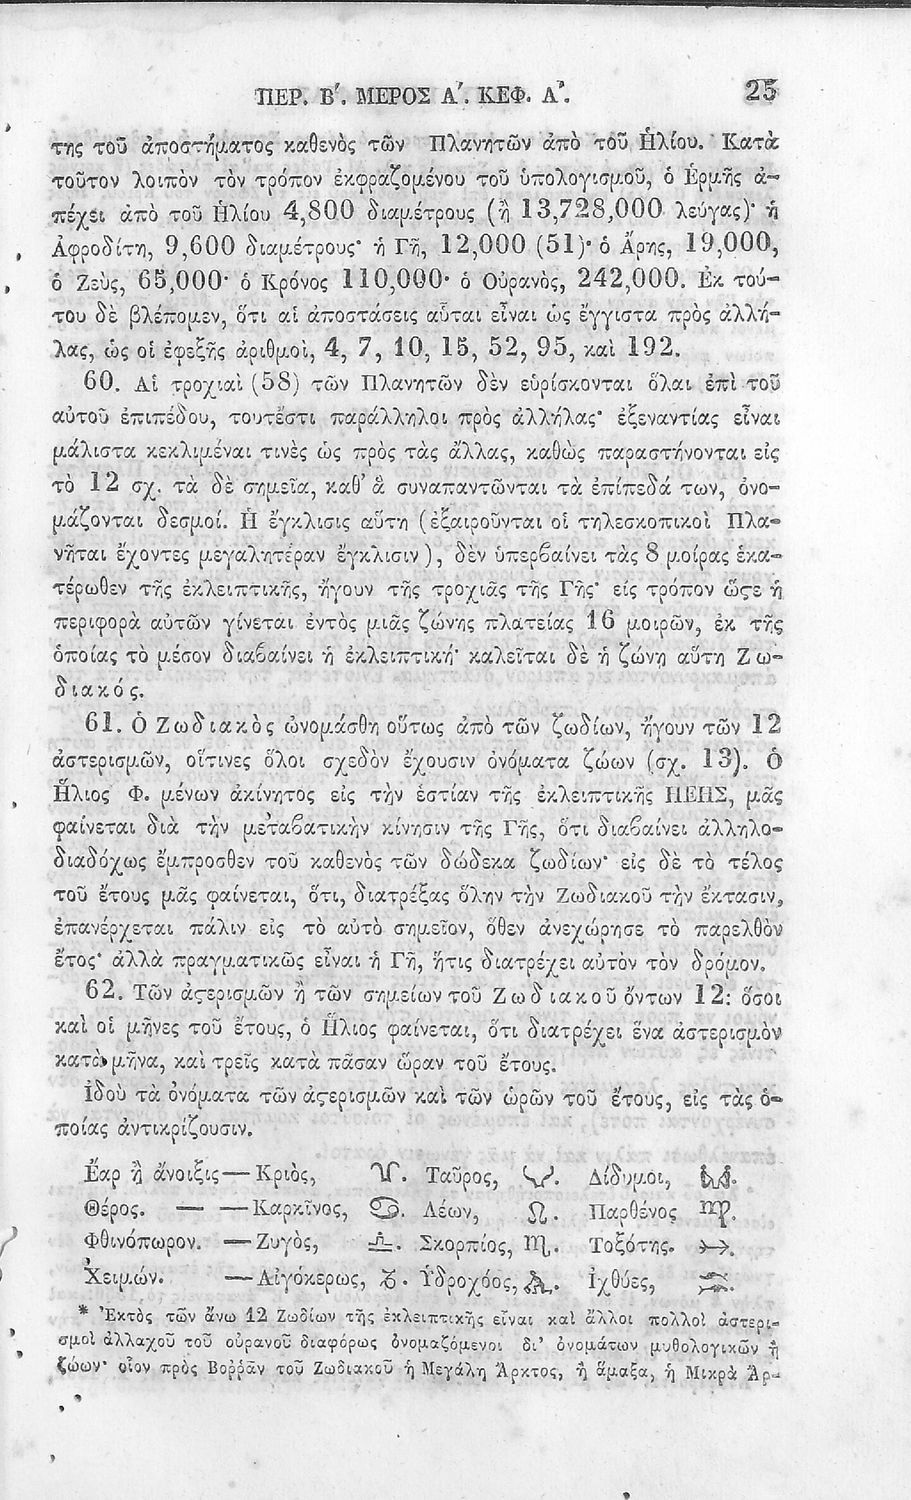 ΠΕΡ. Β΄. ΜΕΡΟΣ Α΄. ΚΕΦ. Α΄. 25
της τοῦ ἀποστήματος καθενὸς τῶν Πλανητῶν ἀπὸ τοῦ Ἡλίου. Κατὰ
τοῦτον λοιπὸν τὸν τρόπον ἐκφραζομένου τοῦ ὑπολογισμοῦ, ὁ Ἑρμῆς ἀ-
πέχει ἀπὸ τοῦ Ἡλίου 4,800 διαμέτρους (ἢ 13,728,000 λεύγας)· ἡ
Ἀφροδίτη, 9,600 διαμέτρους· ἡ Γῆ, 12,000 (51)· ὁ Ἄρης, 19,000,
ὁ Ζεὺς, 65,000· ὁ Κρόνος 110,000· ὁ Οὐρανὸς, 242,000. Ἐκ τού-
του δὲ βλέπομεν, ὅτι αἱ ἀποστάσεις αὗται εἶναι ὡς ἔγγιστα πρὸς ἀλλή-
λας, ὡς οἱ ἐφεξῆς ἀριθμοὶ, 4, 7, 10, 15, 52, 95, καὶ 192.
60. Αἱ τροχιαὶ (58) τῶν Πλανητῶν δὲν εὑρίσκονται ὅλαι ἐπὶ τοῦ
αὐτοῦ ἐπιπέδου, τουτἔστι παράλληλοι πρὸς ἀλλήλας· ἐξεναντίας εἶναι
μάλιστα κεκλιμέναι τινὲς ὡς πρὸς τὰς ἄλλας, καθὼς παραστήνονται εἰς
τὸ 12 σχ. τὰ δὲ σημεῖα, καθ' ἃ συναπαντῶνται τὰ ἐπίπεδά των, ὀνο-
μάζονται δεσμοί. Ἡ ἔγκλισις αὕτη (ἐξαιροῦνται οἱ τηλεσκοπικοὶ Πλα-
νῆται ἔχοντες μεγαλητέραν ἔγκλισιν), δὲν ὑπερβαίνει τὰς 8 μοίρας ἑκα-
τέρωθεν τῆς ἐκλειπτικῆς, ἤγουν τῆς τροχιᾶς τῆς Γῆς· εἰς τρόπον ὥϛε ἡ
περιφορὰ αὐτῶν γίνεται ἐντὸς μιᾶς ζώνης πλατείας 16 μοιρῶν, ἐκ τῆς
ὁποίας τὸ μέσον διαβαίνει ἡ ἐκλειπτική· καλεῖται δὲ ἡ ζώνη αὕτη Ζω-
διακός.
61. Ὁ Ζωδιακὸς ὠνομάσθη οὕτως ἀπὸ τῶν ζωδίων, ἤγουν τῶν 12
ἀστερισμῶν, οἵτινες ὅλοι σχεδὸν ἔχουσιν ὀνόματα ζώων (σχ. 13). Ὁ
Ἥλιος Φ. μένων ἀκίνητος εἰς τὴν ἑστίαν τῆς ἐκλειπτικῆς ΠΕΠΣ, μᾶς
φαίνεται διὰ τὴν μεταβατικὴν κίνησιν τῆς Γῆς, ὅτι διαβαίνει ἀλληλο-
διαδόχως ἔμπροσθεν τοῦ καθενὸς τῶν δώδεκα ζωδίων· εἰς δὲ τὸ τέλος
τοῦ ἔτους μᾶς φαίνεται, ὅτι, διατρέξας ὅλην τὴν Ζωδιακοῦ τὴν ἔκτασιν,
ἐπανέρχεται πάλιν εἰς τὸ αὐτὸ σημεῖον, ὅθεν ἀνεχώρησε τὸ παρελθὸν
ἔτος· ἀλλὰ πραγματικῶς εἶναι ἡ Γῆ, ἥτις διατρέχει αὐτὸν τὸν δρόμον.
62. Τῶν ἀϛερισμῶν ἢ τῶν σημείων τοῦ Ζωδιακοῦ ὄντων 12: ὅσοι
καὶ οἱ μῆνες τοῦ ἔτους, ὁ Ἥλιος φαίνεται, ὅτι διατρέχει ἕνα ἀστερισμὸν
κατὰ μῆνα, καὶ τρεῖς κατὰ πᾶσαν ὥραν τοῦ ἔτους.
Ἰδοὺ τὰ ὀνόματα τῶν ἀϛερισμῶν καὶ τῶν ὡρῶν τοῦ ἔτους, εἰς τὰς ὁ-
ποίας ἀντικρίζουσιν.
Ἔαρ ἢ ἄνοιξις — Κριὸς, ♈. Ταῦρος, ♉. Δίδυμοι, ♊.
Θέρος. — — Καρκῖνος, ♋. Λέων, ♌. Παρθένος ♍.
Φθινόπωρον. — Ζυγὸς, ♎. Σκορπίος, ♏. Τοξότης. ♐.
Χειμών. — Αἰγόκερως, ♑. Ὑδροχόος, ♒. Ἰχθύες, ♓.
* Ἐκτὸς τῶν ἄνω 12 Ζωδίων τῆς ἐκλειπτικῆς εἶναι καὶ ἄλλοι πολλοὶ ἀστερι-
σμοὶ ἀλλαχοῦ τοῦ οὐρανοῦ διαφόρως ὀνομαζόμενοι δι' ὀνομάτων μυθολογικῶν ἢ
ζώων· οἷον πρὸς Βοῤῥᾶν τοῦ Ζωδιακοῦ ἡ Μεγάλη Ἄρκτος, ἢ ἅμαξα, ἡ Μικρὰ Ἄρ-